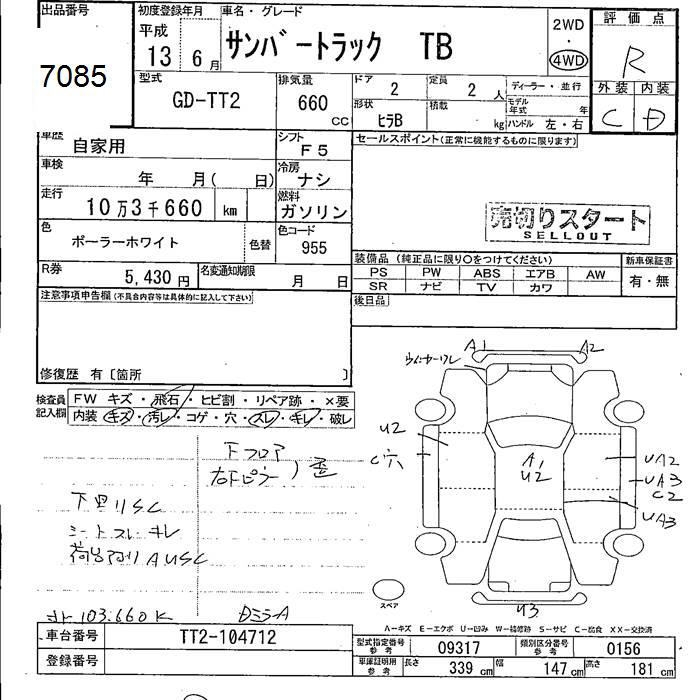 出品番号
7085
初度登録年月
平成
13年 6月
車名・グレード
サンバートラック TB
2WD
・
4WD
評価点
R
外装 内装
C D
型式
GD-TT2
排気量
660
CC
ドア
2
定員
2 人
ディーラー・並行
形状
ヒラB
積載
kg
モデル年式 年
ハンドル 左・右
車歴
自家用
シフト
F5
セールスポイント(正常に機能するものに限ります)
車検
年 月( 日)
冷房
ナシ
走行
10万3千660 km
燃料
ガソリン
売切りスタート
SELLOUT
色
ポーラーホワイト
色替
色コード
955
装備品(純正品に限り○をつけてください)
新車保証書
PS PW ABS エアB AW
SR ナビ TV カワ
有・無
R券
5,430円
名変通知期限
月 日
後日品
注意事項申告欄(不具合内容等は具体的に記入して下さい)
修復歴 有〔箇所 〕
検査員
記入欄
FW キズ・飛石・ヒビ割・リペア跡・×要
内装 キズ・汚レ・コゲ・穴・スレ・キレ・破レ
A1
A2
U2
C穴
A1
U2
UA2
UA3
C2
UA3
U3
下廻りSC
シートスレキレ
103.660K
DミラーA
スペア
A-キズ E-エクボ U-凹み W-補修跡 S-サビ C-腐食 XX-交換済
車台番号
TT2-104712
登録番号
型式指定番号
参考
09317
類別区分番号
参考
0156
車庫証明用
参考
長さ 339 cm 幅 147 cm 高さ 181 cm